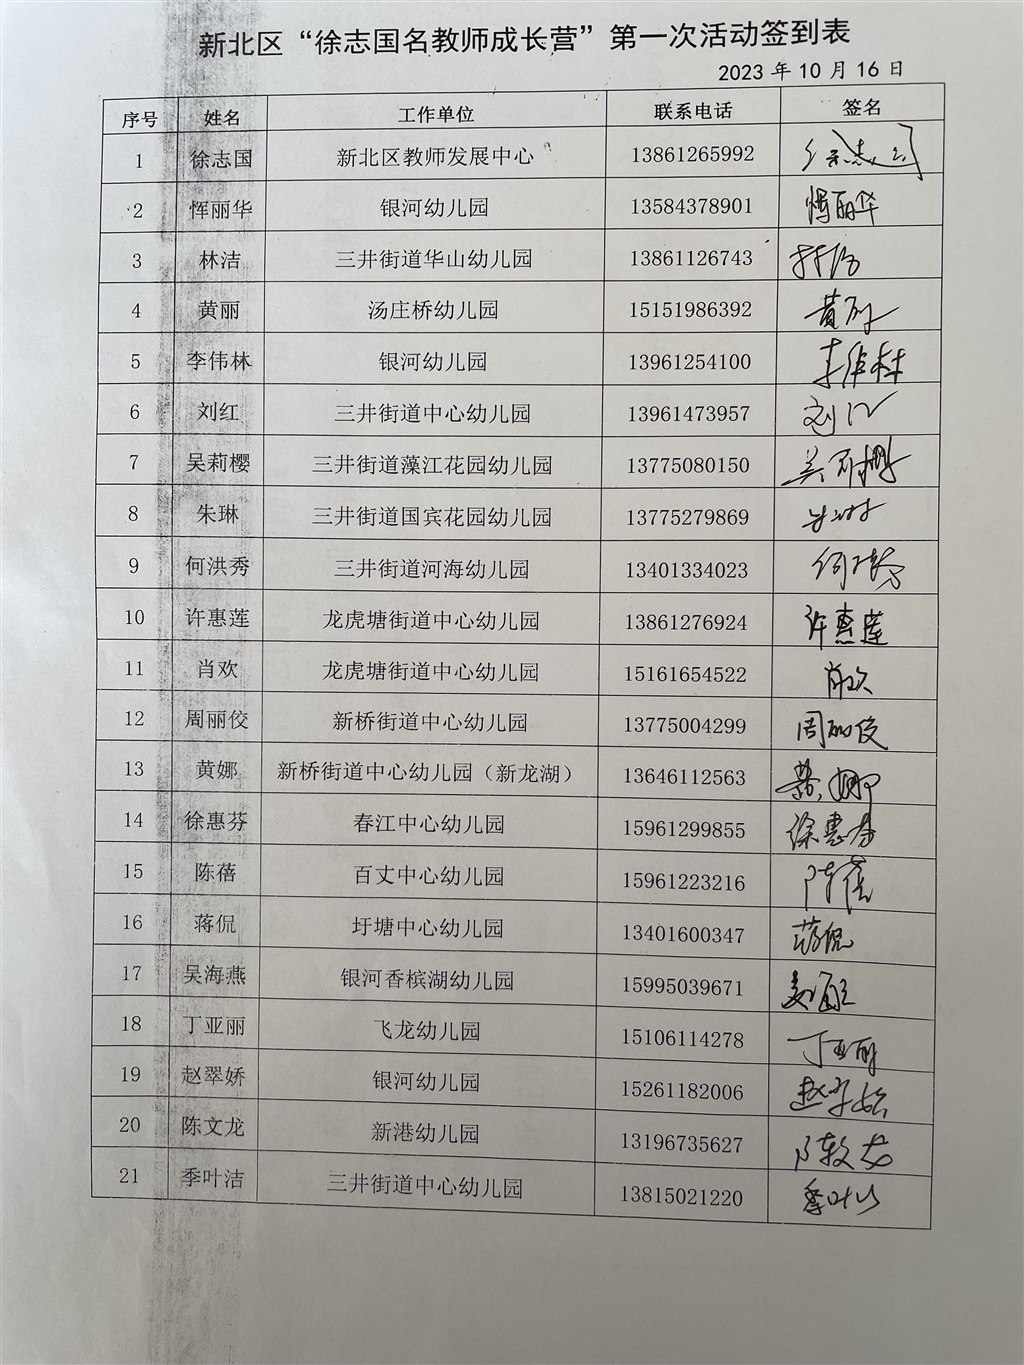 新北区“徐志国名教师成长营”第一次活动签到表
2023 年 10 月 16 日
序号 姓名 工作单位 联系电话 签名
1 徐志国 新北区教师发展中心 13861265992 徐志国
2 恽丽华 银河幼儿园 13584378901 恽丽华
3 林洁 三井街道华山幼儿园 13861126743 林洁
4 黄丽 汤庄桥幼儿园 15151986392 黄丽
5 李伟林 银河幼儿园 13961254100 李伟林
6 刘红 三井街道中心幼儿园 13961473957 刘红
7 吴莉樱 三井街道藻江花园幼儿园 13775080150 吴莉樱
8 朱琳 三井街道国宾花园幼儿园 13775279869 朱琳
9 何洪秀 三井街道河海幼儿园 13401334023 何洪秀
10 许惠莲 龙虎塘街道中心幼儿园 13861276924 许惠莲
11 肖欢 龙虎塘街道中心幼儿园 15161654522 肖欢
12 周丽佼 新桥街道中心幼儿园 13775004299 周丽佼
13 黄娜 新桥街道中心幼儿园（新龙湖） 13646112563 黄娜
14 徐惠芬 春江中心幼儿园 15961299855 徐惠芬
15 陈蓓 百丈中心幼儿园 15961223216 陈蓓
16 蒋侃 圩塘中心幼儿园 13401600347 蒋侃
17 吴海燕 银河香槟湖幼儿园 15995039671
18 丁亚丽 飞龙幼儿园 15106114278 丁亚丽
19 赵翠娇 银河幼儿园 15261182006 赵翠娇
20 陈文龙 新港幼儿园 13196735627 陈文龙
21 季叶洁 三井街道中心幼儿园 13815021220 季叶洁